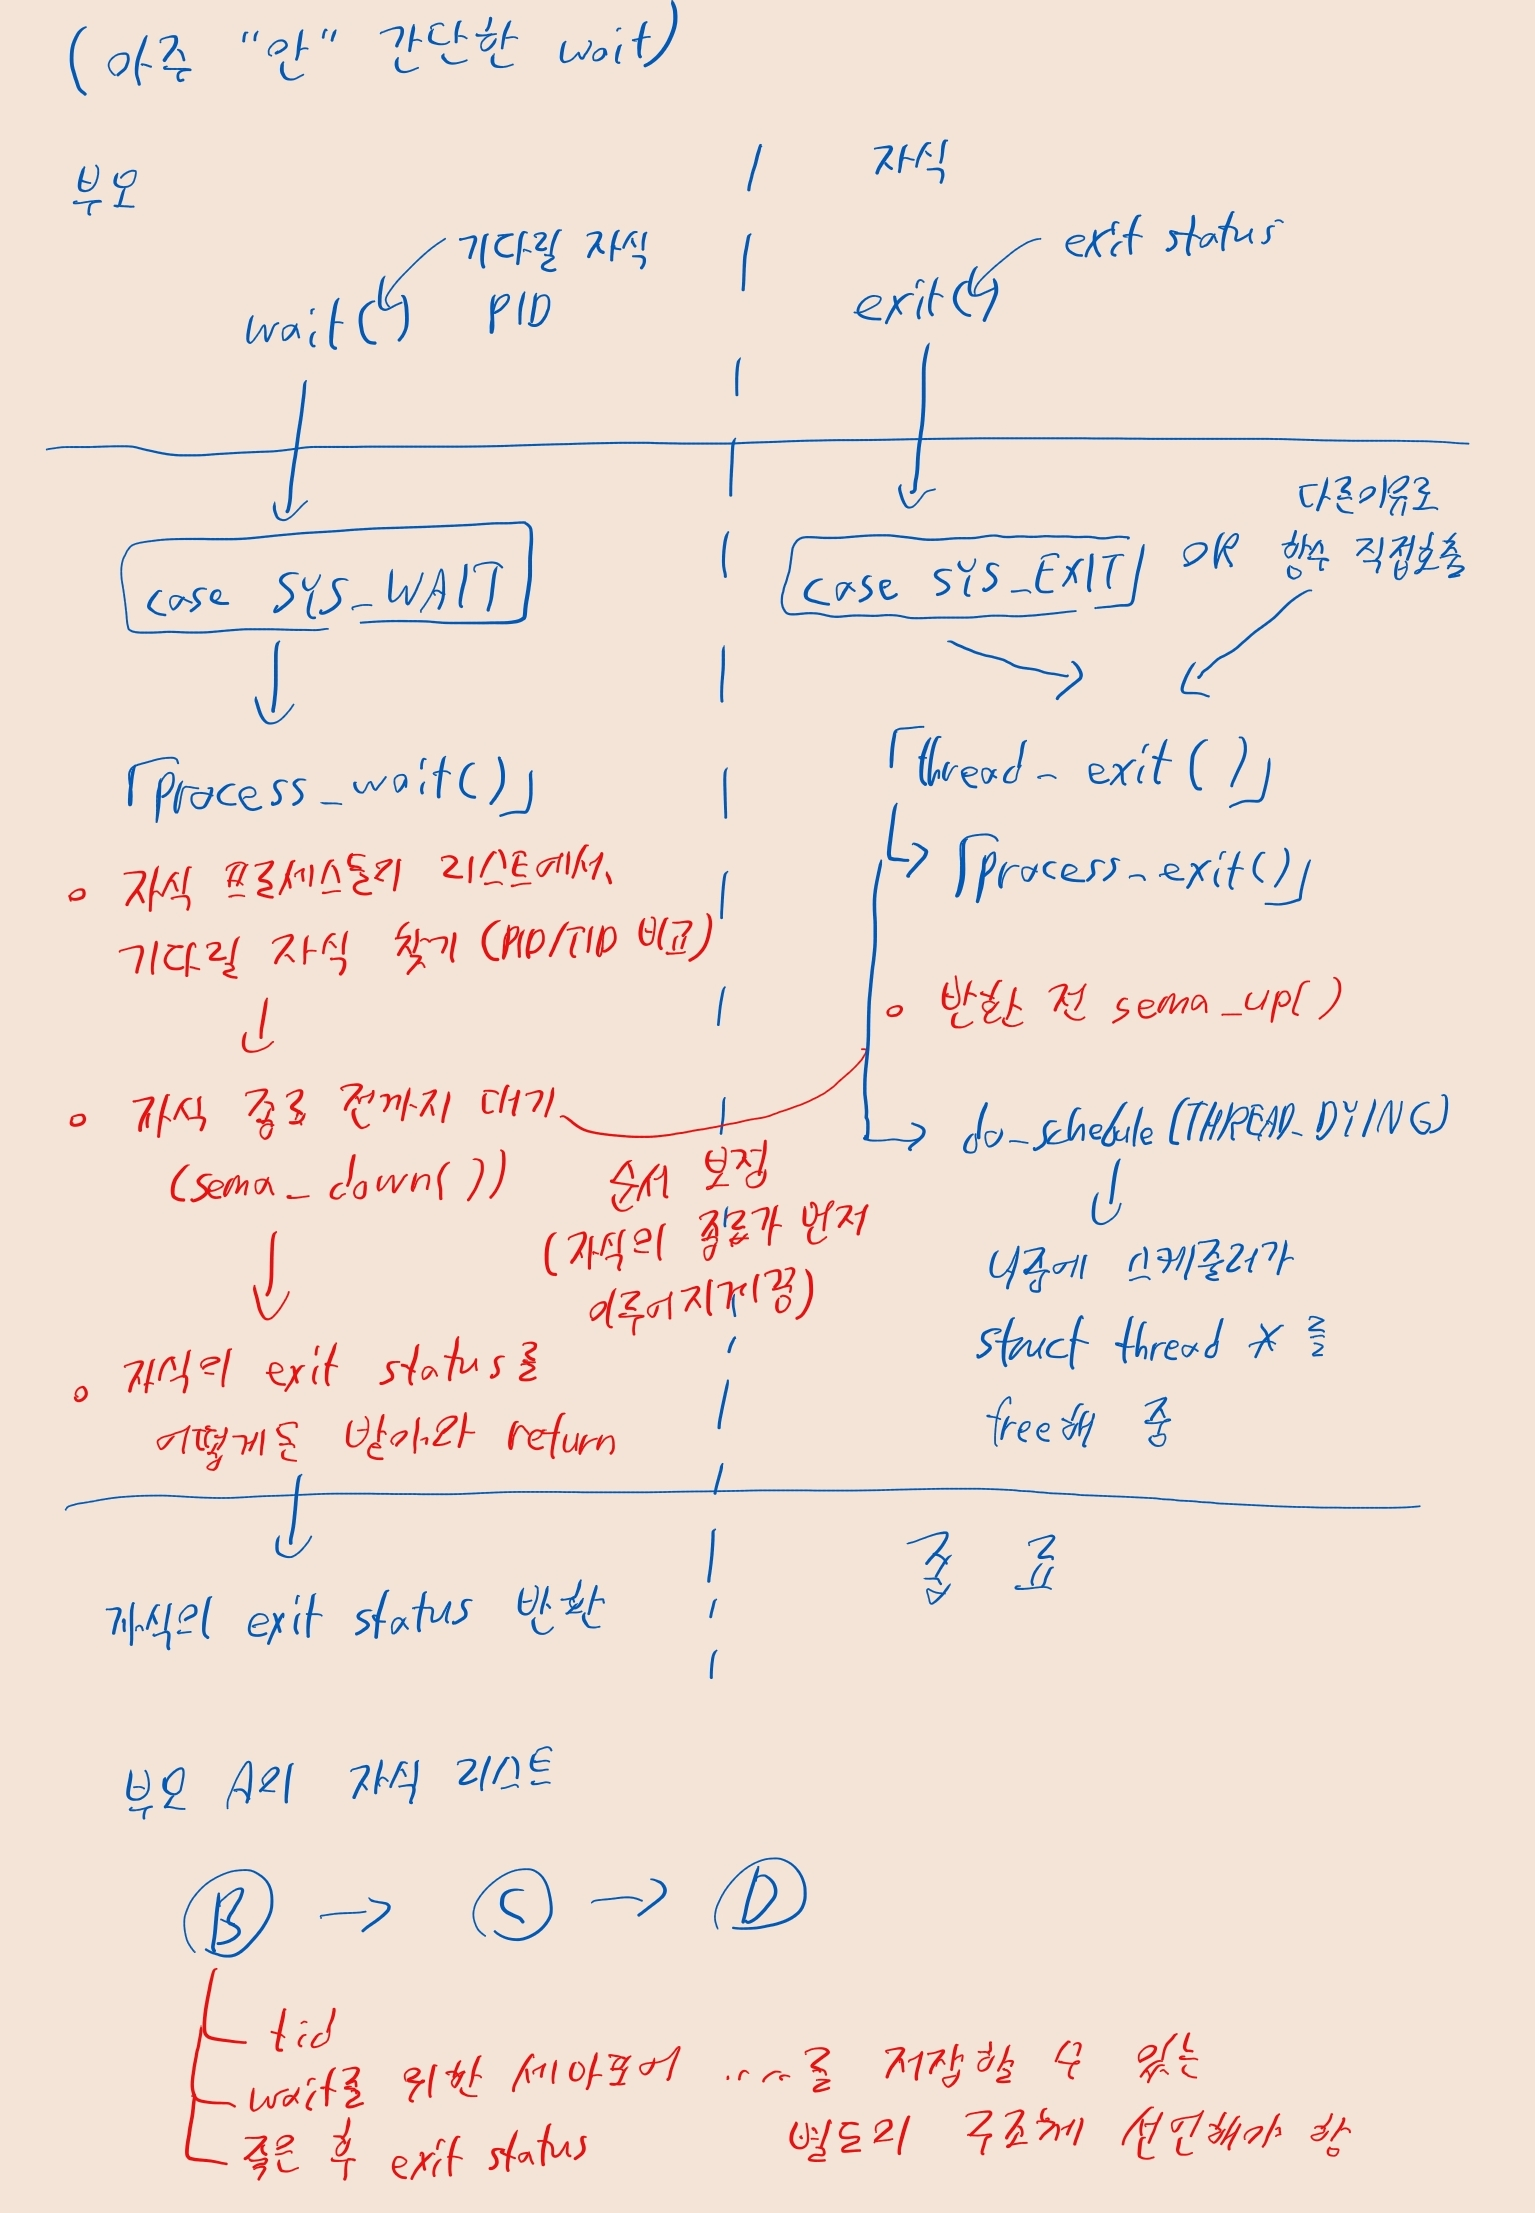 (아주 "안" 간단한 wait)
부모
자식
기다릴 자식
PID
wait( )
exit status
exit( )
case SYS_WAIT
case SYS_EXIT OR
다른이유로
함수 직접호출
「process_wait()」
「thread_exit()」
「process_exit()」
자식 프로세스들의 리스트에서,
기다릴 자식 찾기 (PID/TID 비교)
반환 전 sema_up()
자식 종료 전까지 대기
(sema_down())
do_schedule(THREAD_DYING)
순서 보정
(자식의 종료가 먼저
이루어지게끔)
나중에 스케줄러가
struct thread * 를
free해 줌
자식의 exit status를
어떻게든 받아와 return
자식의 exit status 반환
종 료
부모 A의 자식 리스트
B → C → D
tid
wait를 위한 세마포어 ....를 저장할 수 있는
죽은 후 exit status 별도의 구조체 선언해야 함